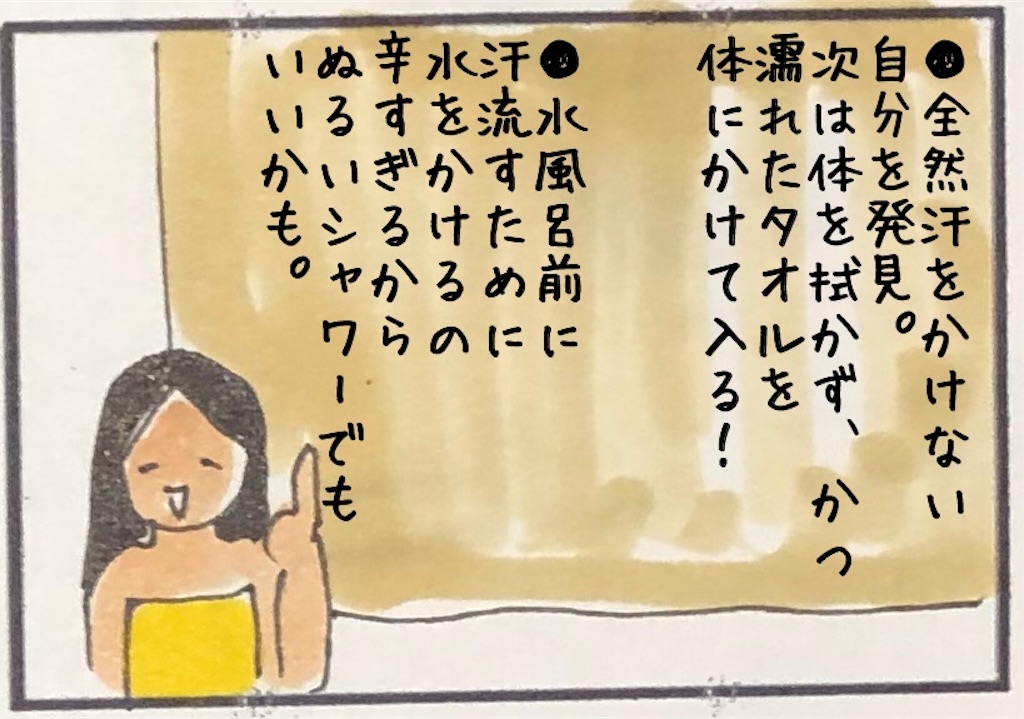 ●全然汗をかけない
自分を発見。
次は体を拭かず、かつ
濡れたタオルを
体にかけて入る！
●水風呂前に
汗流すために
水をかけるの
辛すぎるから
ぬるいシャワーでも
いいかも。